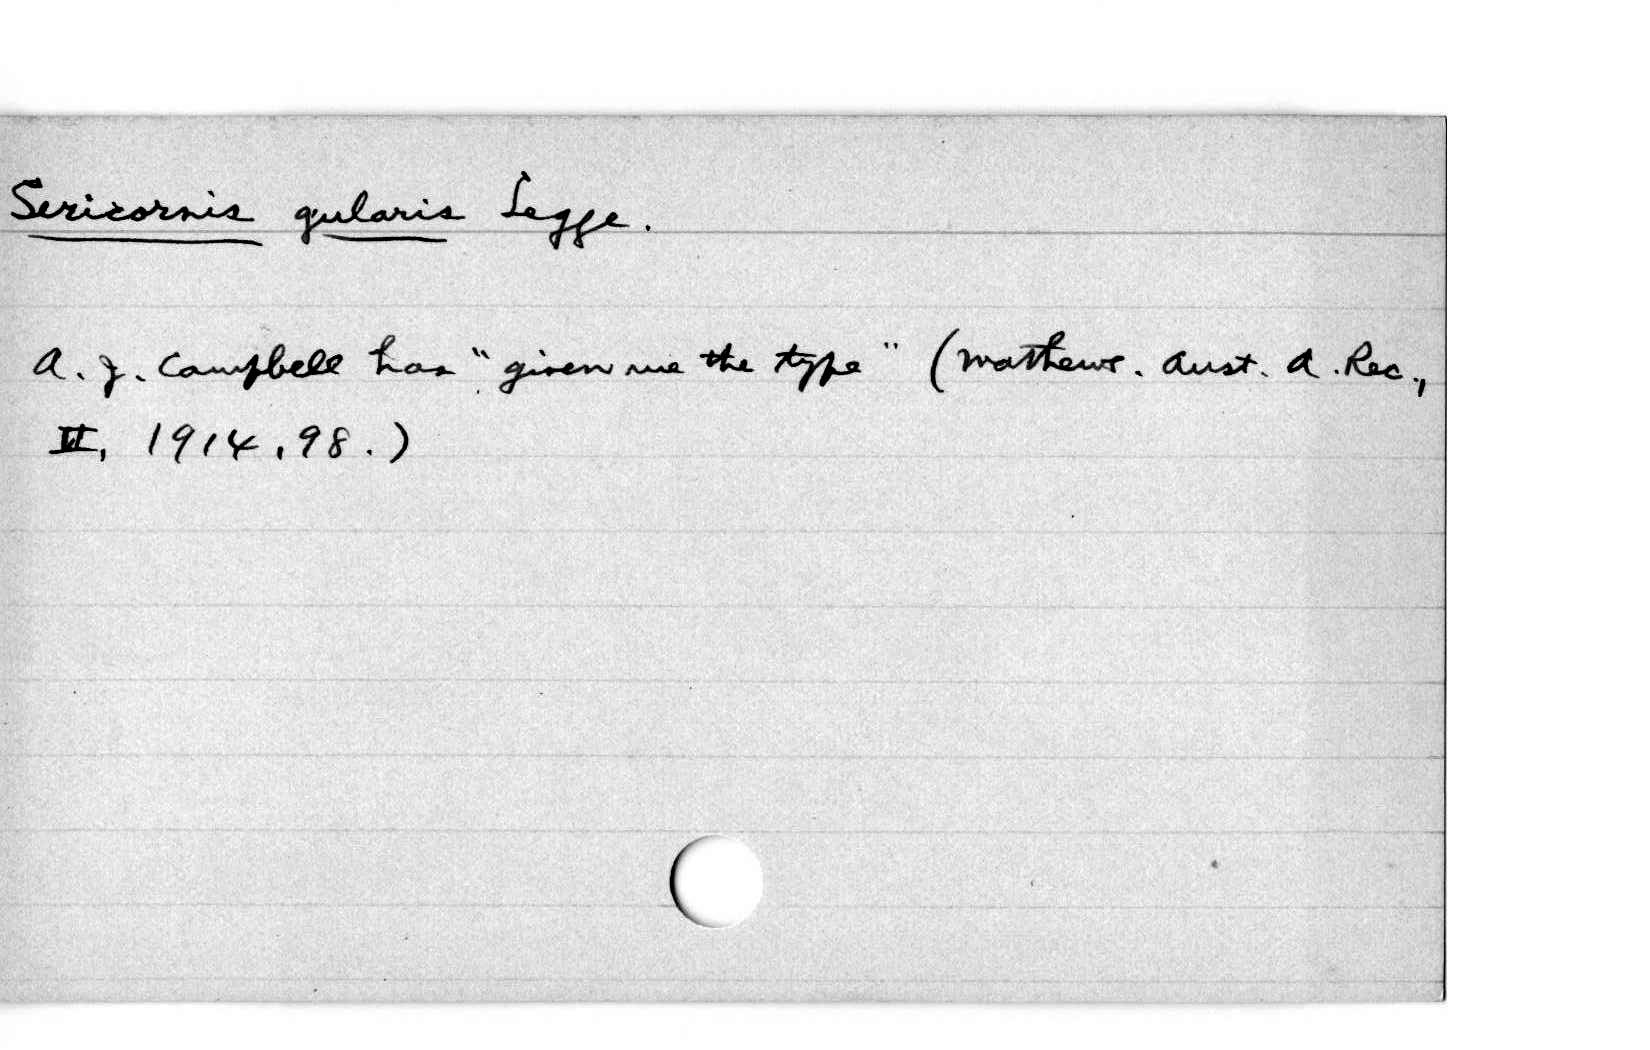 Sericornis gularis Legge.
A. J. Campbell has "given me the type" (Mathews. Aust. A. Rec.,
II, 1914, 98.)